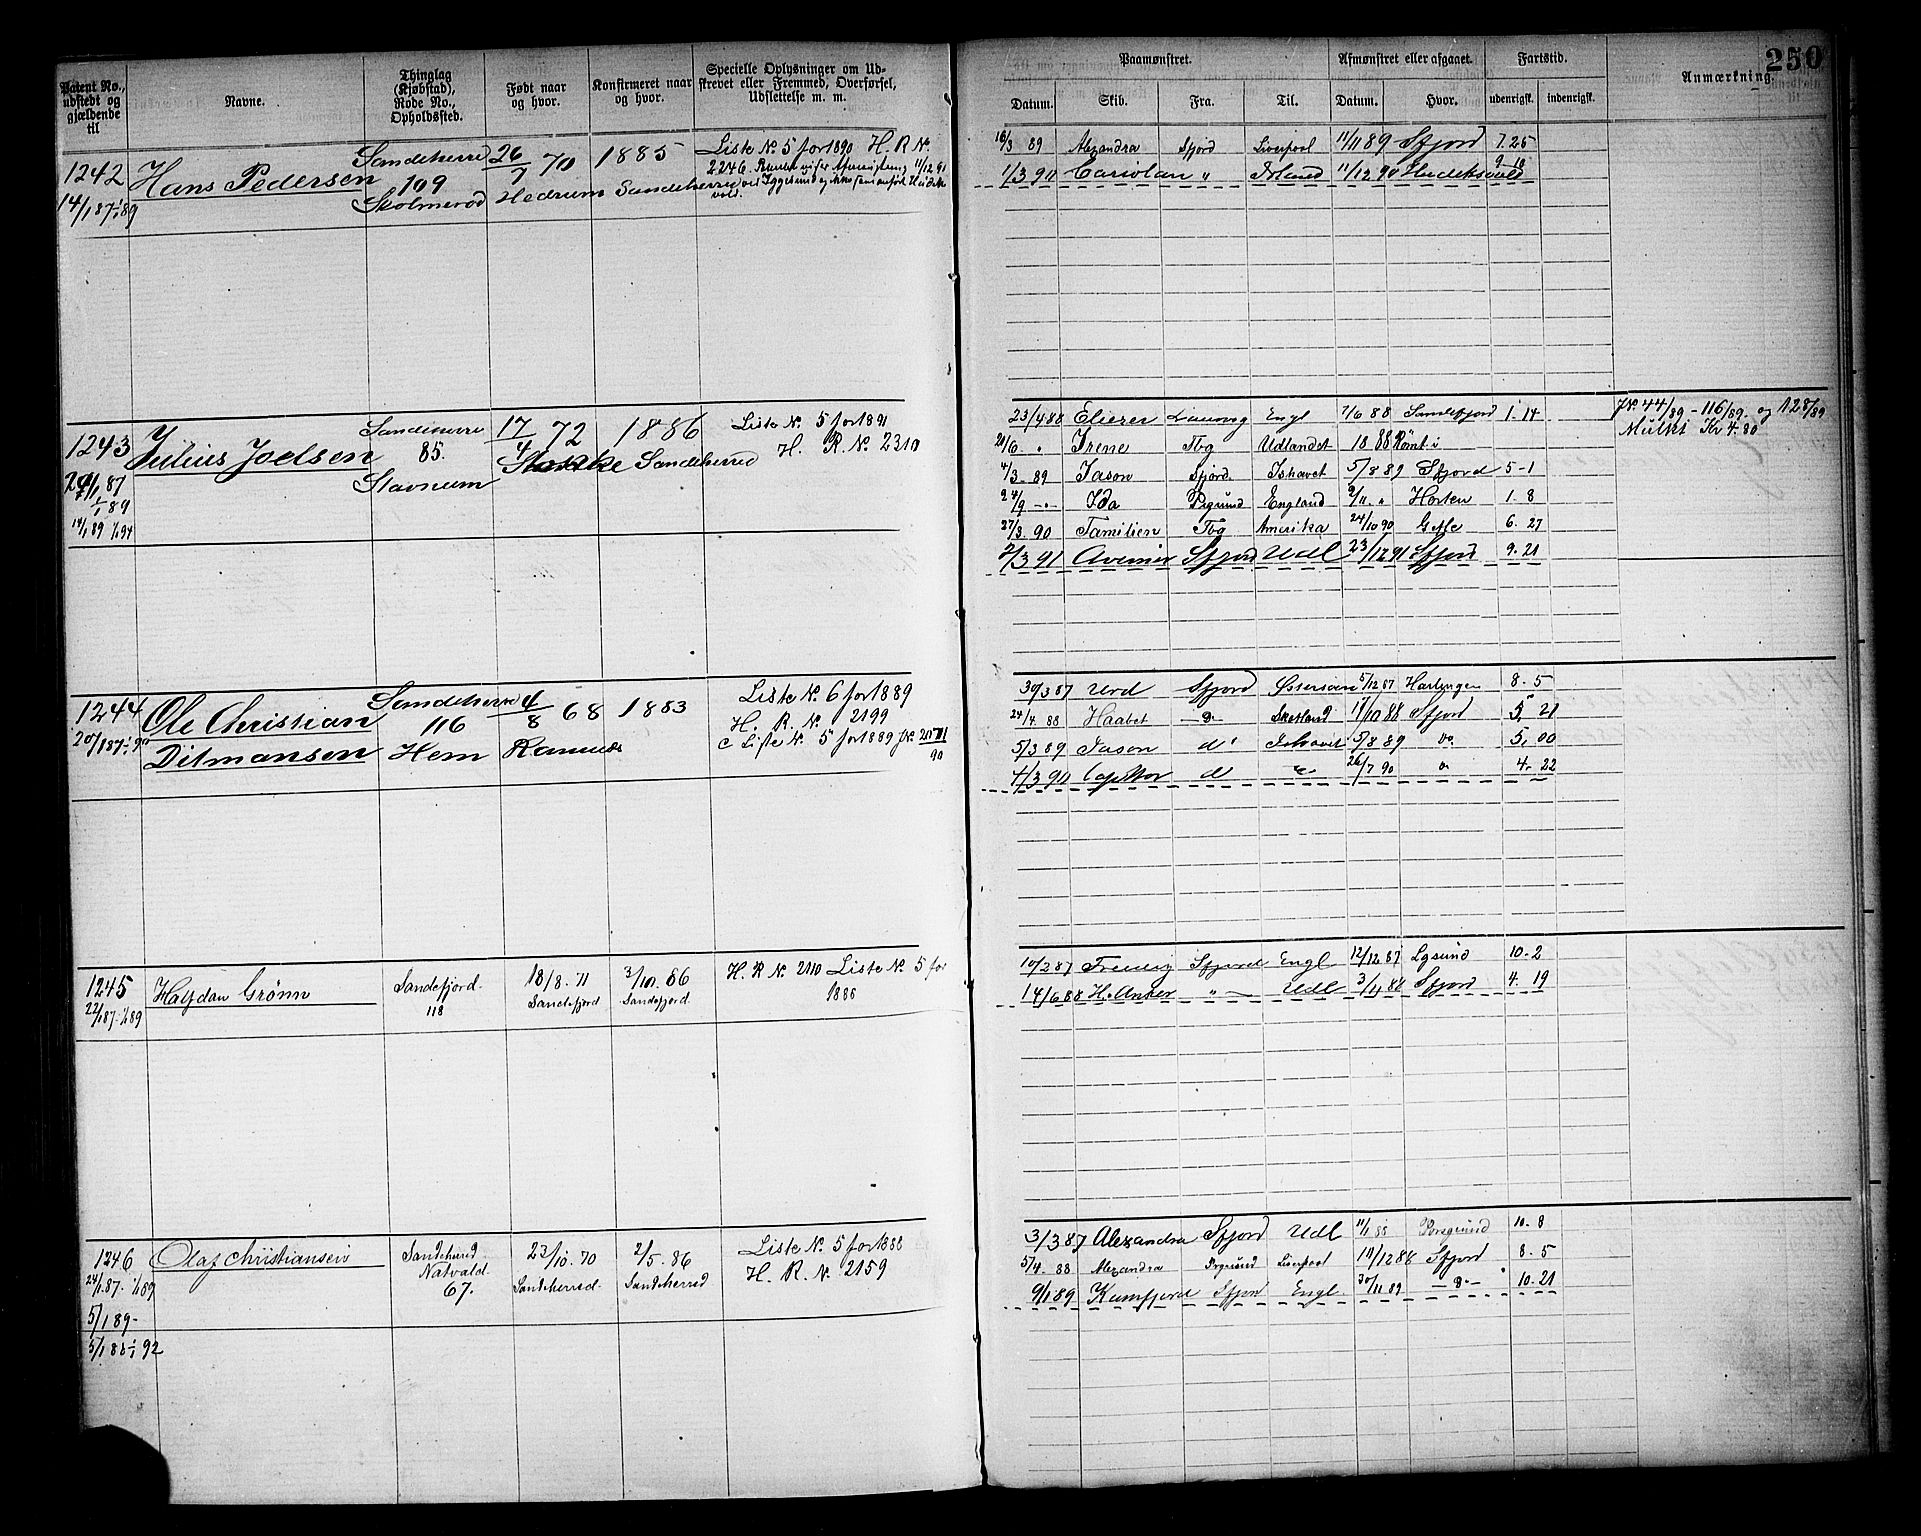 250
Patent No., udstedt og gjældende til
Navne.
Thinglag (Kjøbstad), Rode No., Opholdssted.
Født naar og hvor.
Konfirmeret naar og hvor.
Specielle Oplysninger om Udskrevet eller Fremmed, Overførsel, Udslettelse m. m.
Paamønstret.
Afmønstret eller afgaaet.
Fartstid.
Anmærkning.
Datum. Skib. Fra. Til. Datum. Hvor. udenrigsk. indenrigsk.
1242
14/1 87 - 1/1 89
Hans Pedersen
Sandeherred
109
Skolmerød
26/7 70
Hedrum
1885
Sandeherred
Liste No. 5 for 1890 H. R. No.
2246.
16/3 89 Alexandra Sfjord Liverpool 11/11 89 Sfjord 7. 25
1/3 90 Cariolan " Island 11/12 90 9. 10
1243
Julius Joelsen
85.
Stavnum
17/4 72
Stokke
1886
Sandeherred
Liste No. 5 for 1891
H. R. No. 2310
14/1 89 1/1 94
23/4 88 Eliezer Engl 7/6 88 Sandefjord 1. 14
JNo. 44/89 - 116/89. og 128/89
Mulkt Kr 4.80
20/6 " Irene Tbg Udlandet 18. 88 Rømt i
4/3 89 Jason Sfjord. Ishavet 5/8 89 Sfjord 5-1
24/9 -"- Ida Prgrund England 2/11. " Horten 1. 8
27/3. 90 Familien Tbg Amerika 24/10 90 Gefle 6. 27
2/3 91 Sfjord Udl 23/12 91 Sfjord 9. 21
1244
Ole Christian
Ditmansen
Sandeherred
116
Hem
4/8 68
Ramnæs
1883
Liste No. 6 for 1889
H. R. No. 2199
Liste No. 5 for 1889
30/3 87 Urd Sfjord 5/12 87 Harlingen 8. 5
24/4. 88 Haabet Sfjord 5, 21
5/3 89 Jason do Ishavet 5/8 89 do. 5, 00
4/3 90 26/7 90 4. 22
1245
22/1 87 - 1/1 89
Halfdan Grønn
Sandefjord.
118
18/8. 71
Sandefjord
3/10. 86
Sandefjord.
H. R No. 2110 Liste No. 5 for
1886
10/2 87 Sfjord Engl 12/12. 87 10. 2
14/6 88 H. Anker " Udl 3/11 88 Sfjord 4. 19
1246
24/1 87. 1/1 89
5/1 89 -
Olaf Christiansen
Sandeherred.
Natvald.
67.
23/10. 70
Sandeherred.
2/5. 86
Sandeherred
Liste No. 5 for 1888
H. R. No. 2159
3/3 87 Alexandra Sfjord Udl Porsgrund 10. 8
5/4. 88 Alexandra Prgrund Liverpool Sfjord 8. 5
9/1 89 Sfjord Engl. 30/11 89 10. 21